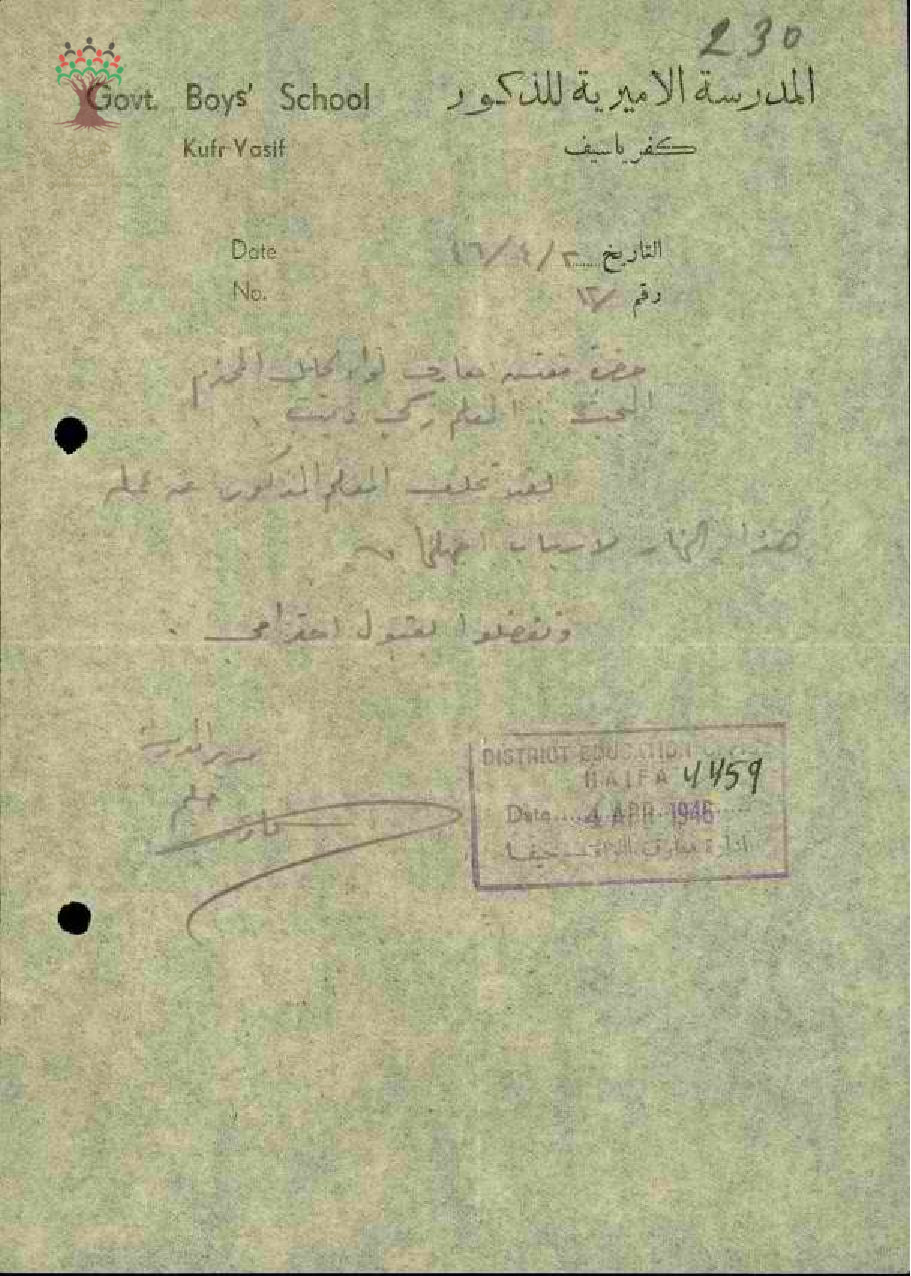 230
Govt. Boys' School
المدرسة الاميرية للذكور
Kufr Yasif
كفر ياسيف
Date
التاريخ ٢/٤/٤٦
No.
رقم ١٢/
حضرة مفتش معارف لواء الجليل المحترم
البحث : المعلم زكي
لقد تخلف المعلم المذكور عن عمله
هذا النهار لاسباب اجهلها
وتفضلوا بقبول احترامي .
مدير المدرسة
DISTRICT EDUCATION OFFICE
HAIFA 4459
Date 4 APR 1946
ادارة معارف اللواء حيفا